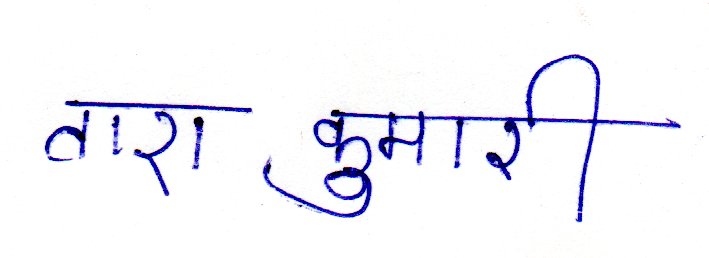 तारा कुमारी